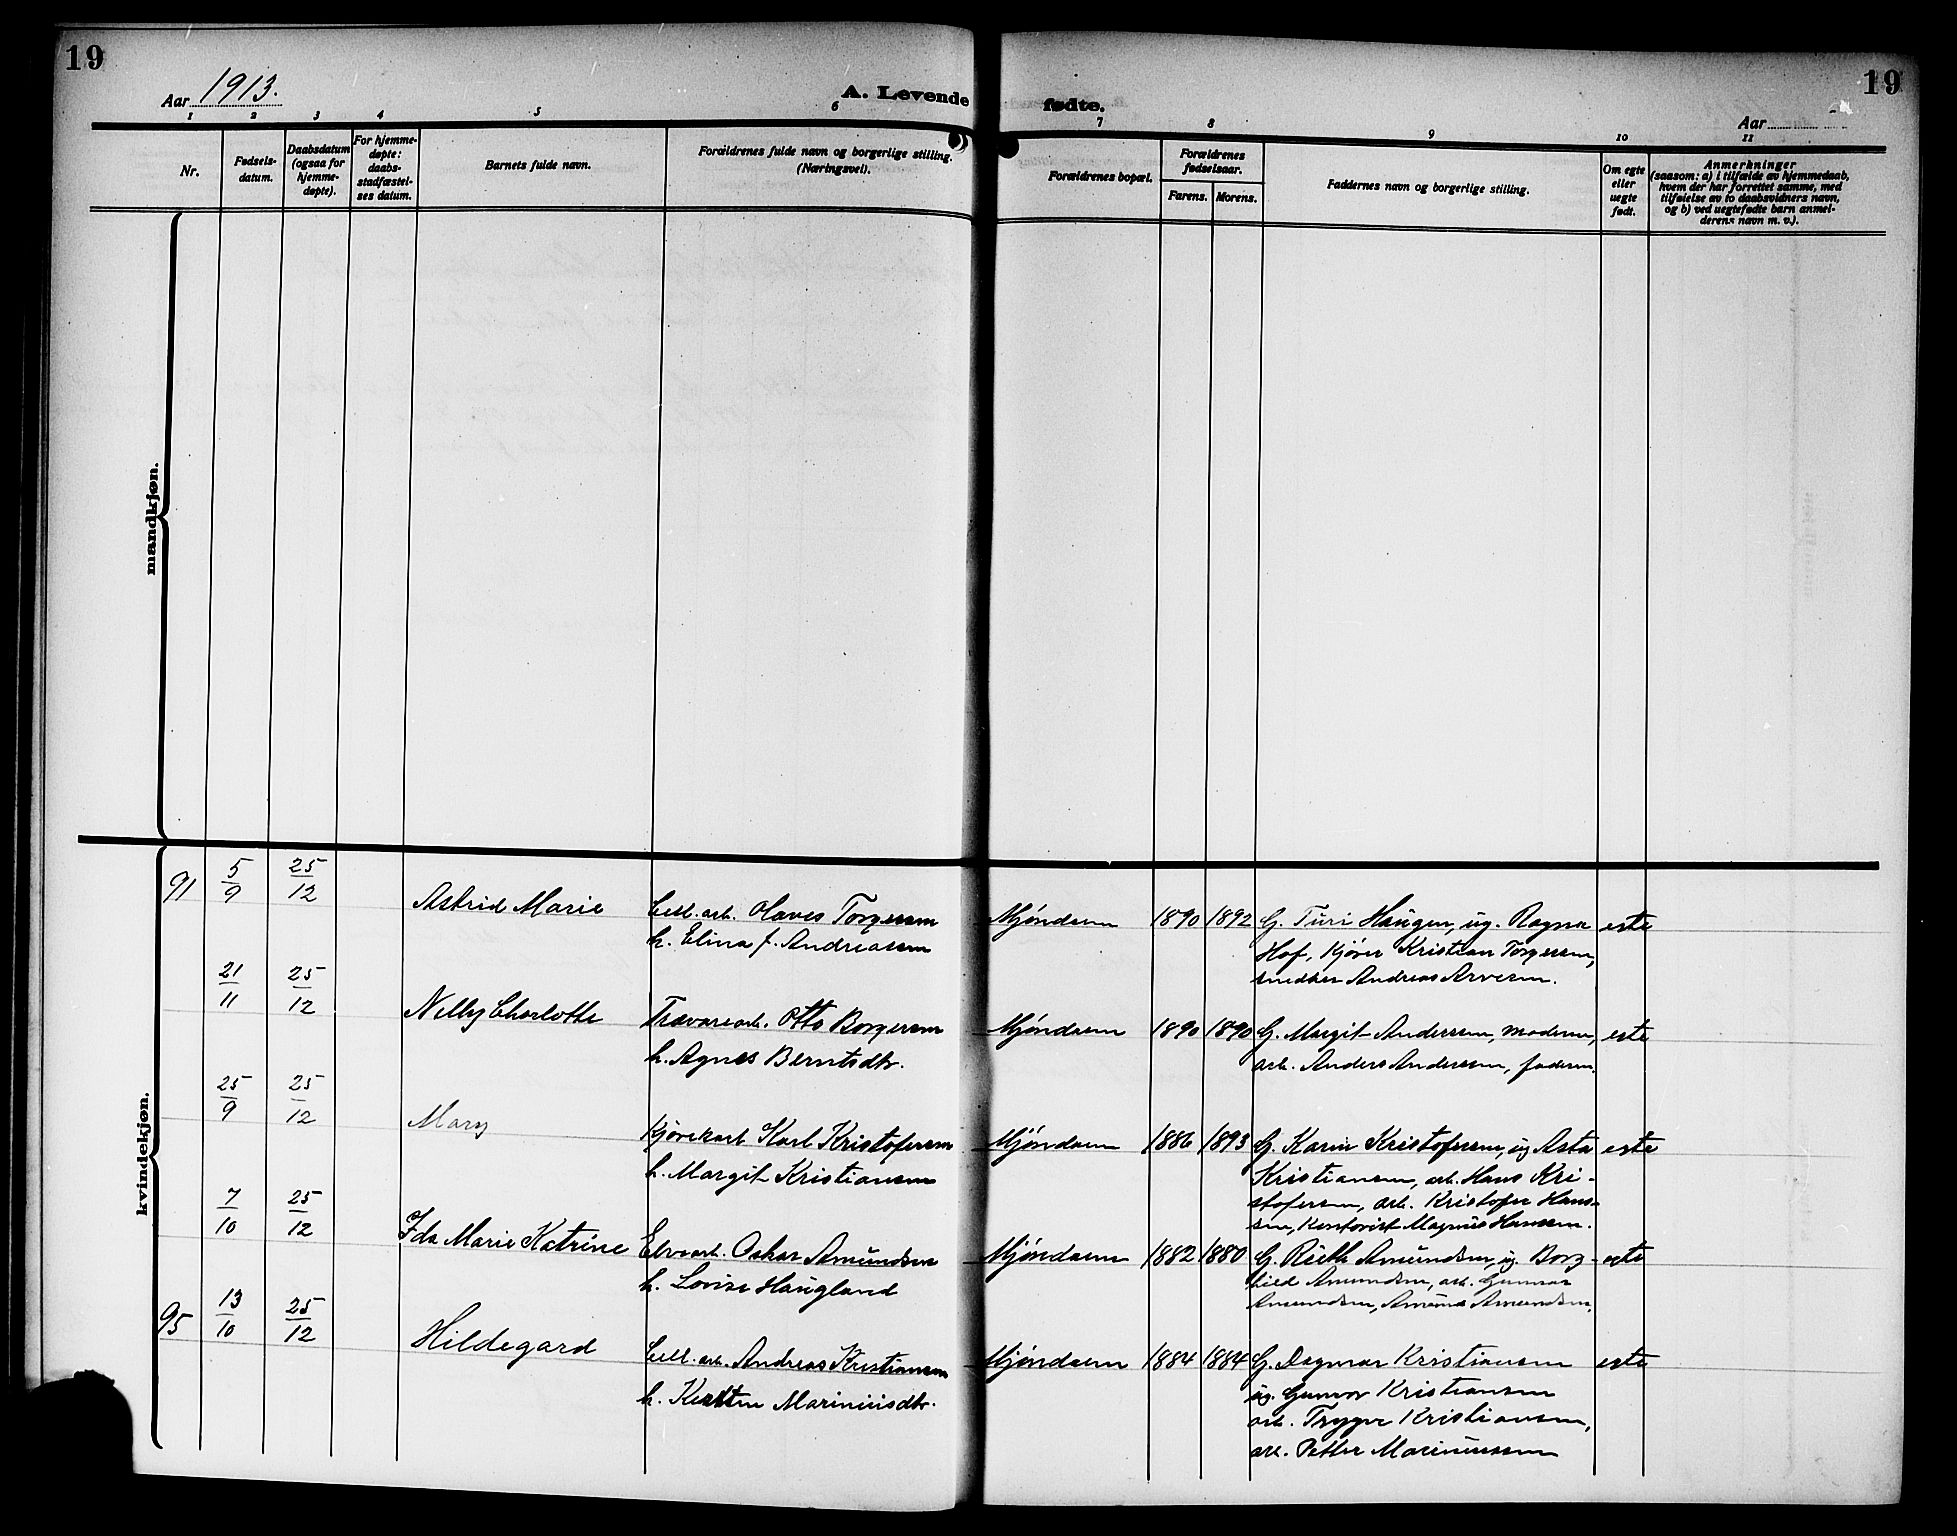 19
19
Aar 1913.
A. Levende fødte.
Aar
1 2 3 4 5 6 7 8 9 10 11
Nr.
Fødsels-
datum.
Daabsdatum
(ogsaa for
hjemme-
døpte).
For hjemme-
døpte:
daabs-
stadfæstel-
ses datum.
Barnets fulde navn.
Forældrenes fulde navn og borgerlige stilling.
(Næringsvei).
Forældrenes bopæl.
Forældrenes
fødselsaar.
Farens. Morens.
Faddernes navn og borgerlige stilling.
Om egte
eller
uegte
født.
Anmerkninger
(saasom: a) i tilfælde av hjemmedaab,
hvem der har forrettet samme, med
tilføielse av to daabsvidners navn,
og b) ved uegtefødte barn anmel-
derens navn m. v.).
mandkjøn.
kvindekjøn.
91 5/9 25/12 Astrid Marie Cell. arb. Olaves Torgersen Mjøndalen 1890 1892 G. Turi Haugen, ug. Ragna egte
h. Elina f. Andreassen
Hof, Kjører Kristian Torgersen,
snedker Andreas
21/11 25/12 Nelly Charlotte Trævarearb. Otto Borgersen Mjøndalen 1890 1890 G. Margit Anderssen, moderen, egte
h. Agnes Berntsdtr.
arb. Anders Anderssen, faderen.
25/9 25/12 Mary Karl Kristofersen Mjøndalen 1886 1893 G. Karin Kristofersen, ug Asta egte
h. Margit Kristiansen
Kristiansen, arb. Hans Kri-
stofersen, arb. Kristofer Hans-
sen, Kontorist Magnus Hanssen.
7/10 25/12 Ida Marie Katrine Elvearb. Oskar Amundsen Mjøndalen 1882 1880 G. Ruth Amundsen, ug. Borg- egte
h. Lovise Haugland
hild Amundsen, arb. Gunnar
Amundsen, Amund Amundsen.
95 13/10 25/12 Hildegard Cell. arb. Andreas Kristiansen Mjøndalen 1884 1884 G. Dagmar Kristiansen egte
h. Mariniusdtr.
ug. Gunvor Kristiansen
arb. Trygve Kristiansen,
arb. Petter Mariniussen